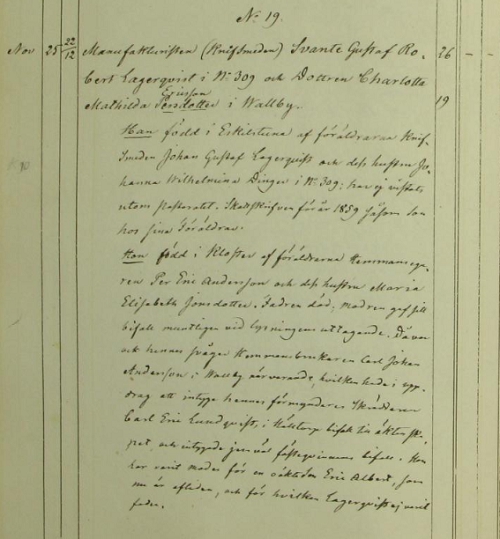 No 19.
Nov 25 22/12 Manufakturisten (Knifsmeden) Svante Gustaf Ro- 26 - -
bert Lagerqvist i No 309 och Dottren Charlotta
Ericson
Mathilda Persdotter i Wallby. 19
Han född i Eskilstuna af föräldrarna Knif-
smeden Johan Gustaf Lagerqvist och dess hustru Jo-
hanna Wilhelmina Dinger i No 309; har ej vistats
utom Pastoratet. Skattskrifven för år 1859 såsom Son
hos sina Föräldrar.
Hon född i Kloster af föräldrarna Hemmansega-
ren Per Eric Andersson och dess hustru Maria
Elisabeth Jonsdotter. Fadren död; modren gef sitt
bifall muntligen vid lysningens uttagande. Då var
ock hennes svåger Hemmansbrukaren Carl Johan
Anderson i Wallby närvarande, hvilken hade i upp-
drag att intyga hennes förmyndares Skräddaren
Carl Eric Lundqvists, i Hälstorp bifall till äktenska-
pet, och intygade jemväl fästeqvinnans bifall. Hon
har varit moder för en oäkta son Eric Albert, som
nu är afliden, och för hvilken Lagerqvist ej varit
fader.